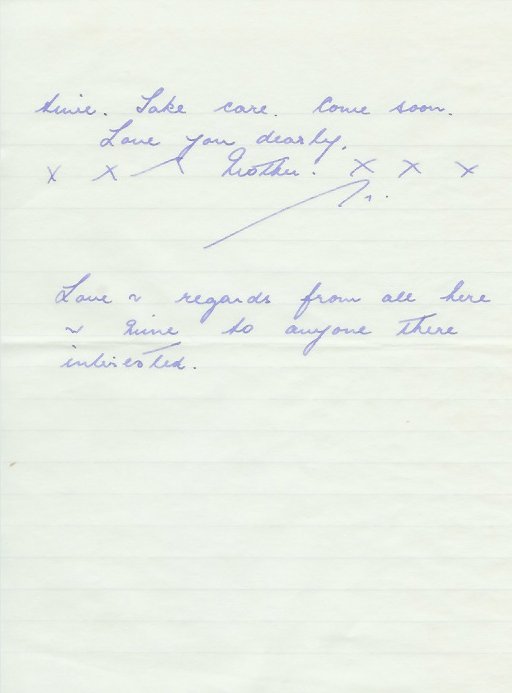 time. Take care. Come soon.
Love you dearly,
x x Mother. x x x
Love & regards from all here
& mine to anyone there
interested.